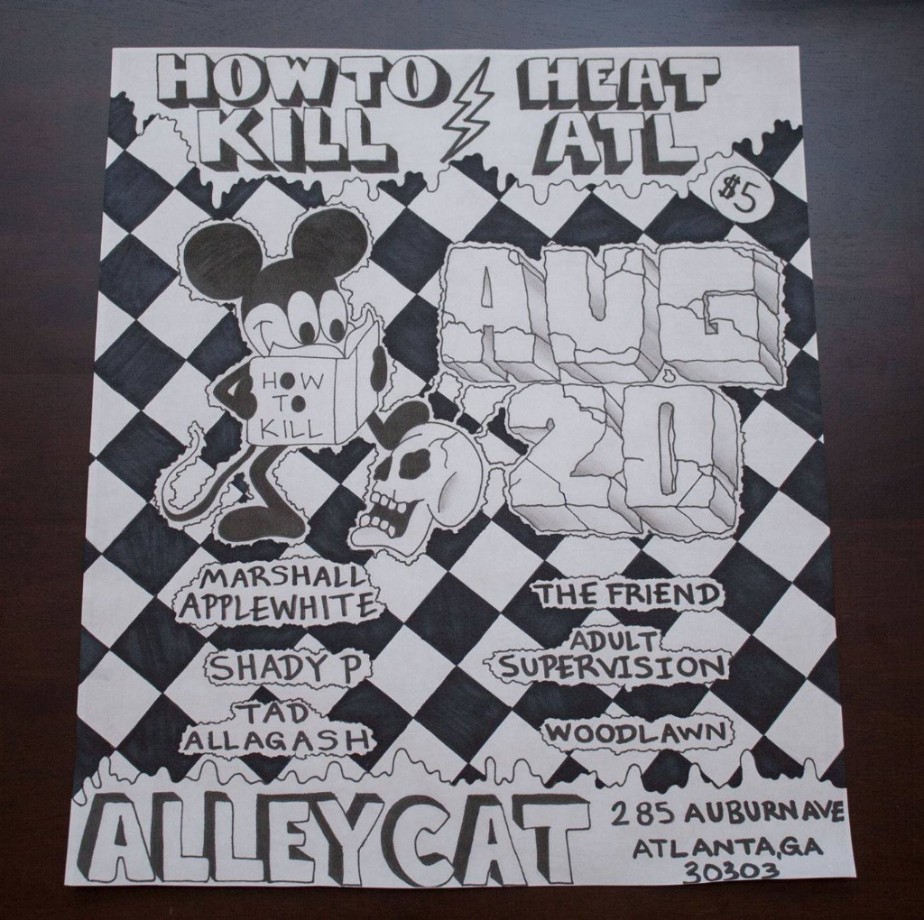 HOW TO
KILL
HEAT
ATL
$5
AUG
20
HOW
TO
KILL
MARSHALL
APPLEWHITE
THE FRIEND
SHADY P
ADULT
SUPERVISION
TAD
ALLAGASH
WOODLAWN
ALLEYCAT
285 AUBURN AVE
ATLANTA, GA
30303